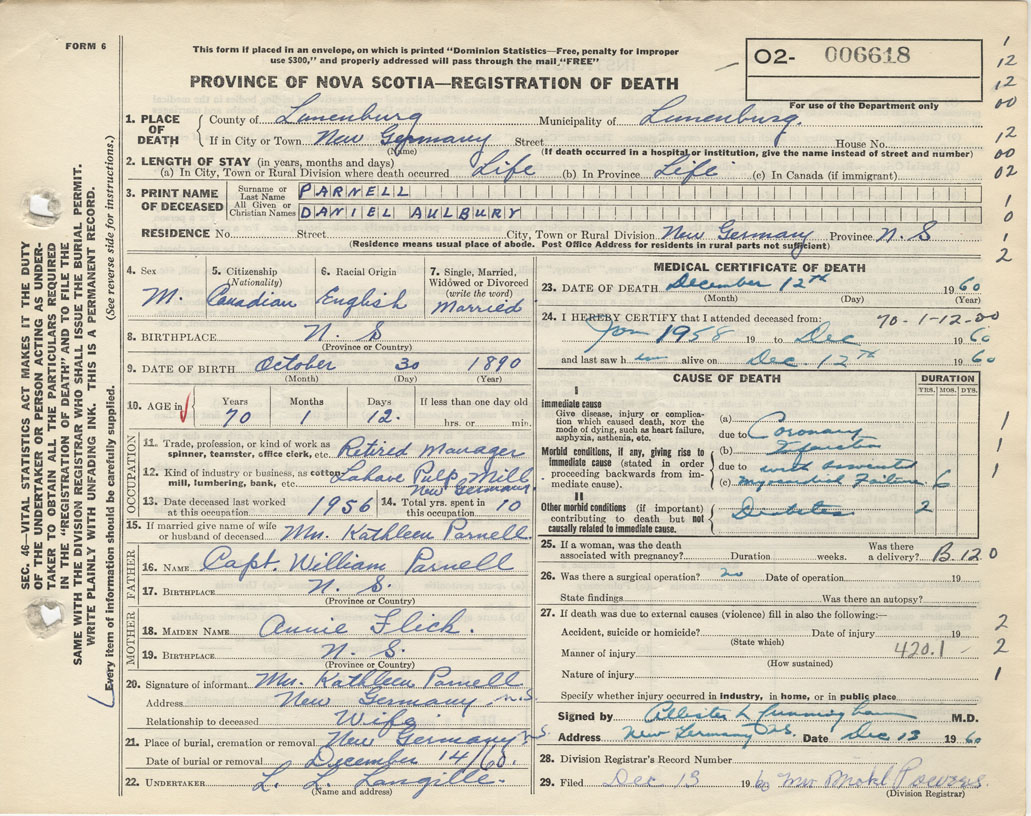 FORM 6
This form if placed in an envelope, on which is printed "Dominion Statistics—Free, penalty for improper
use $300," and properly addressed will pass through the mail "FREE"
PROVINCE OF NOVA SCOTIA—REGISTRATION OF DEATH
O2- 006618
For use of the Department only
SEC. 46—VITAL STATISTICS ACT MAKES IT THE DUTY
OF THE UNDERTAKER OR PERSON ACTING AS UNDER-
TAKER TO OBTAIN ALL THE PARTICULARS REQUIRED
IN THE "REGISTRATION OF DEATH" AND TO FILE THE
SAME WITH THE DIVISION REGISTRAR WHO SHALL ISSUE THE BURIAL PERMIT.
WRITE PLAINLY WITH UNFADING INK. THIS IS A PERMANENT RECORD.
Every item of information should be carefully supplied. (See reverse side for instructions.)
1. PLACE OF DEATH
County of Lunenburg Municipality of Lunenburg.
If in City or Town New Germany Street House No.
(Name) (If death occurred in a hospital or institution, give the name instead of street and number)
2. LENGTH OF STAY (in years, months and days)
(a) In City, Town or Rural Division where death occurred Life (b) In Province Life (c) In Canada (if immigrant)
3. PRINT NAME OF DECEASED
Surname or Last Name PARNELL
All Given or Christian Names DANIEL AULBURY
RESIDENCE No. Street City, Town or Rural Division New Germany Province N. S
(Residence means usual place of abode. Post Office Address for residents in rural parts not sufficient)
4. Sex M.
5. Citizenship (Nationality) Canadian
6. Racial Origin English
7. Single, Married, Widowed or Divorced (write the word) Married
8. BIRTHPLACE N. S
(Province or Country)
9. DATE OF BIRTH October 30 1890
(Month) (Day) (Year)
10. AGE in Years 70 Months 1 Days 12. If less than one day old
hrs. or min.
OCCUPATION
11. Trade, profession, or kind of work as spinner, teamster, office clerk, etc. Retired Manager
12. Kind of industry or business, as cotton-mill, lumbering, bank, etc. Lahave Pulp Mill
New Germany
13. Date deceased last worked at this occupation 1956 14. Total yrs. spent in this occupation 10
15. If married give name of wife or husband of deceased Mrs. Kathleen Parnell
FATHER
16. NAME Capt. William Parnell
17. BIRTHPLACE N. S.
(Province or Country)
MOTHER
18. MAIDEN NAME Annie Flick.
19. BIRTHPLACE N. S.
(Province or Country)
20. Signature of informant Mrs. Kathleen Parnell
Address New Germany N.S.
Relationship to deceased Wife
21. Place of burial, cremation or removal New Germany N.S.
Date of burial or removal December 14/60.
22. UNDERTAKER L. L. Langille.
(Name and address)
MEDICAL CERTIFICATE OF DEATH
23. DATE OF DEATH December 12th 1960
(Month) (Day) (Year)
24. I HEREBY CERTIFY that I attended deceased from: 70-1-12-00
Jan 1958 19 to Dec 1960
and last saw him alive on Dec 12th 1960
CAUSE OF DEATH
DURATION
YRS. MOS. DYS.
I
Immediate cause
Give disease, injury or complica-
tion which caused death, NOT the
mode of dying, such as heart failure,
asphyxia, asthenia, etc.
Morbid conditions, if any, giving rise to
immediate cause (stated in order
proceeding backwards from im-
mediate cause).
(a) Coronary
due to
(b)
due to with
(c) myocardial Failure 6
II
Other morbid conditions (if important)
contributing to death but not
causally related to immediate cause.
Diabetes 2
25. If a woman, was the death
associated with pregnancy? Duration weeks. Was there a delivery? B.120
26. Was there a surgical operation? no Date of operation 19
State findings Was there an autopsy?
27. If death was due to external causes (violence) fill in also the following:—
Accident, suicide or homicide? Date of injury 19
(State which)
Manner of injury 420.1
(How sustained)
Nature of injury
Specify whether injury occurred in industry, in home, or in public place
Signed by Cunningham M.D.
Address New Germany N.S. Date Dec 13 1960
28. Division Registrar's Record Number
29. Filed Dec 13 1960 Mrs Powers.
(Division Registrar)
1
12
12
00
12
00
02
1
0
1
2
1
1
1
2
2
1